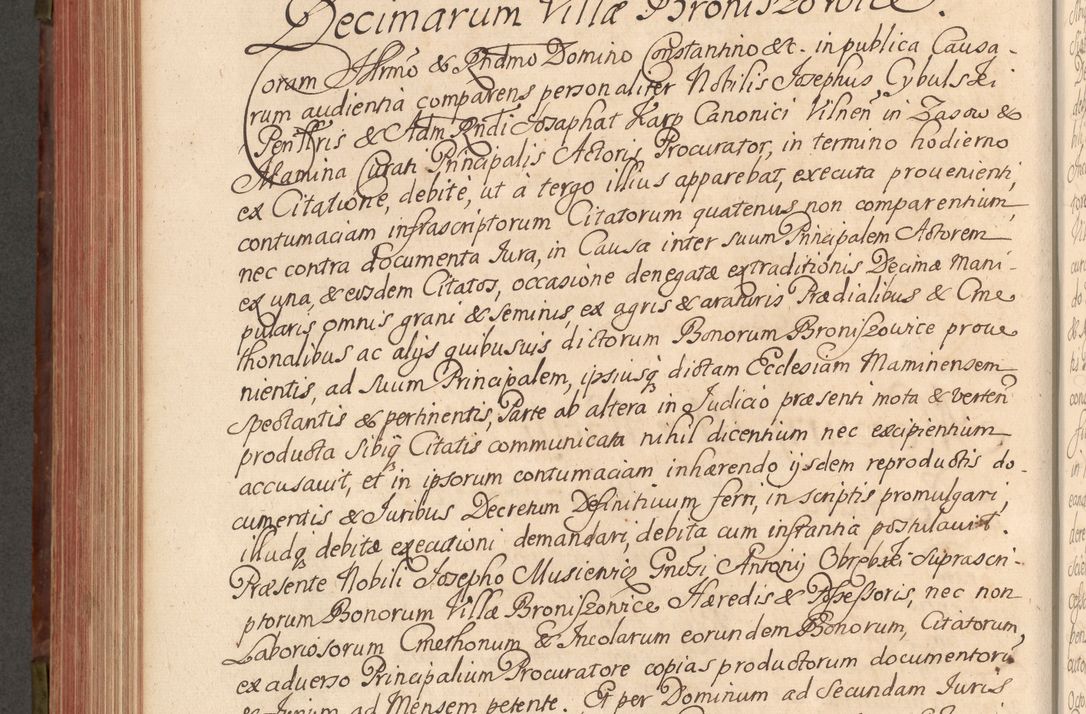 Decimarum Villæ Broniszowice.
Coram Illmo & Rndmo Domino Constantino &c. in publica Causa-
rum audientia comparens personaliter Nobilis Josephus Cybulski
Penłłris & Adm Rndi Josaphat Karp Canonici Vilneñ in Zasow &
Mamina Curati Principalis Actoris Procurator, in termino hodierno
ex Citatione, debite, ut à tergo illius apparebat, executa provenienti,
contumaciam infrascriptorum Citatorum quatenus non comparentium,
nec contra documenta Jura, in Causa inter suum Principalem Actorem
ex una, & eosdem Citatos, occasione denegatæ extraditionis Decimæ Mani-
pularis, omnis grani & seminis, ex agris & araturis Prædialibus & Cme
thonalibus ac alijs quibusuis dictorum Bonorum Broniszowice prove
nientis, ad suum Principalem, ipsiusq dictam Ecclesiam Maminensem
spectantis & pertinentis, Parte ab altera in Judicio præsenti mota & verteñ
producta sibiq Citatis communicata nihil dicentium nec excipientium
accusavit, et in ipsorum contumaciam inhærendo ijsdem reproductis do-
cumentis & Juribus Decretum Definitivum ferri, in scriptis promulgari,
illudq debitæ executioni demandari, debita cum instantia postulavit.
Præsente Nobili Josepho Musienicz Gnosi Antonij Obrębski suprascri-
ptorum Bonorum Villæ Broniszowice Hæredis & Possessoris, nec non
Laboriosorum Cmethonum & Incolarum eorundem Bonorum, Citatorum,
ex adverso Principalium Procuratore copias productorum documentorũ
& Jurium ad Mensem petente. Et per Dominum ad secundam Juris